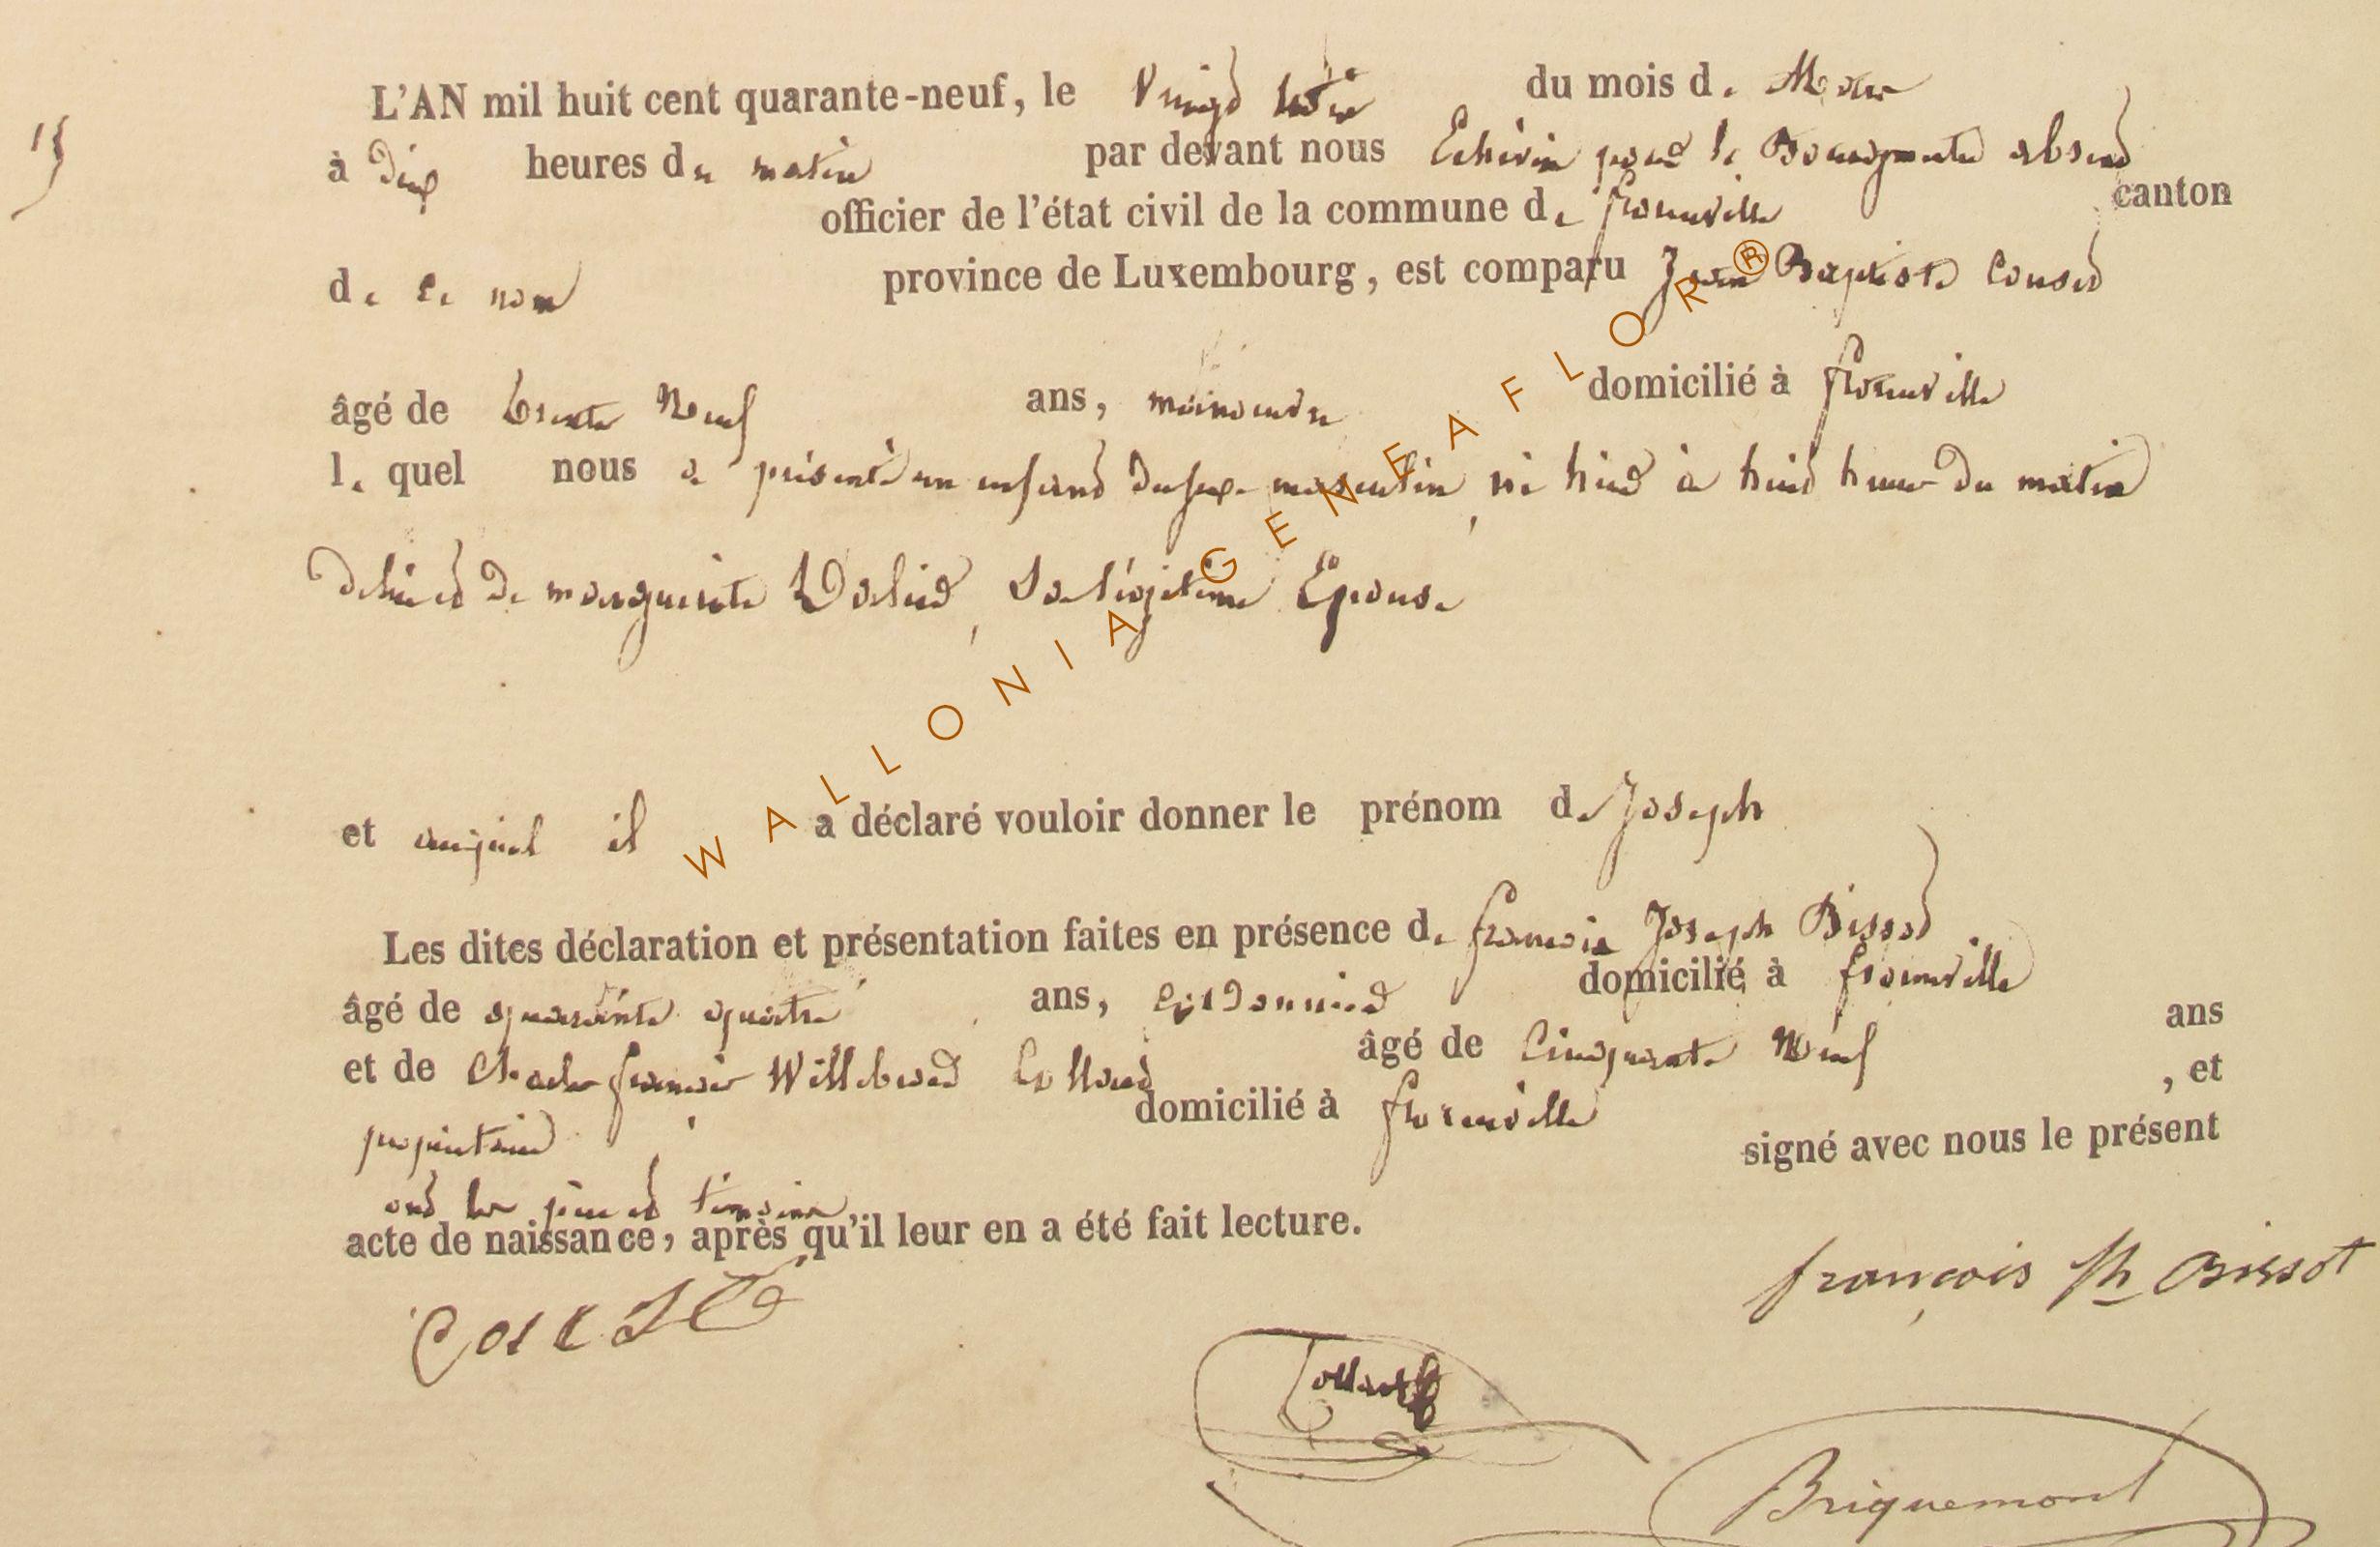 L'AN mil huit cent quarante-neuf, le Vingt trois du mois de Mars
à Dix heures du matin par devant nous Echévin pour le Bourgmestre absent
officier de l'état civil de la commune de florenville canton
de ce nom province de Luxembourg, est comparu Jean Baptiste Consed
âgé de trente Neuf ans, manoeuvre domicilié à florenville
le quel nous a présenté un enfant du sexe masculin, né hier à huit heures du matin
délivré de marguerite, Sa légitime Epouse
et auquel il a déclaré vouloir donner le prénom de Joseph
Les dites déclaration et présentation faites en présence de francois Joseph Bissot
âgé de quarante quatre ans, cordonnier domicilié à florenville
et de Charles francois Willebrord Collard âgé de Cinquante Neuf ans
propriétaire domicilié à florenville, et
ont les père et témoins signé avec nous le présent
acte de naissance, après qu'il leur en a été fait lecture.
françois Jh Bissot
Collard
Briquemont
WALLONIA GENEAFLOR®